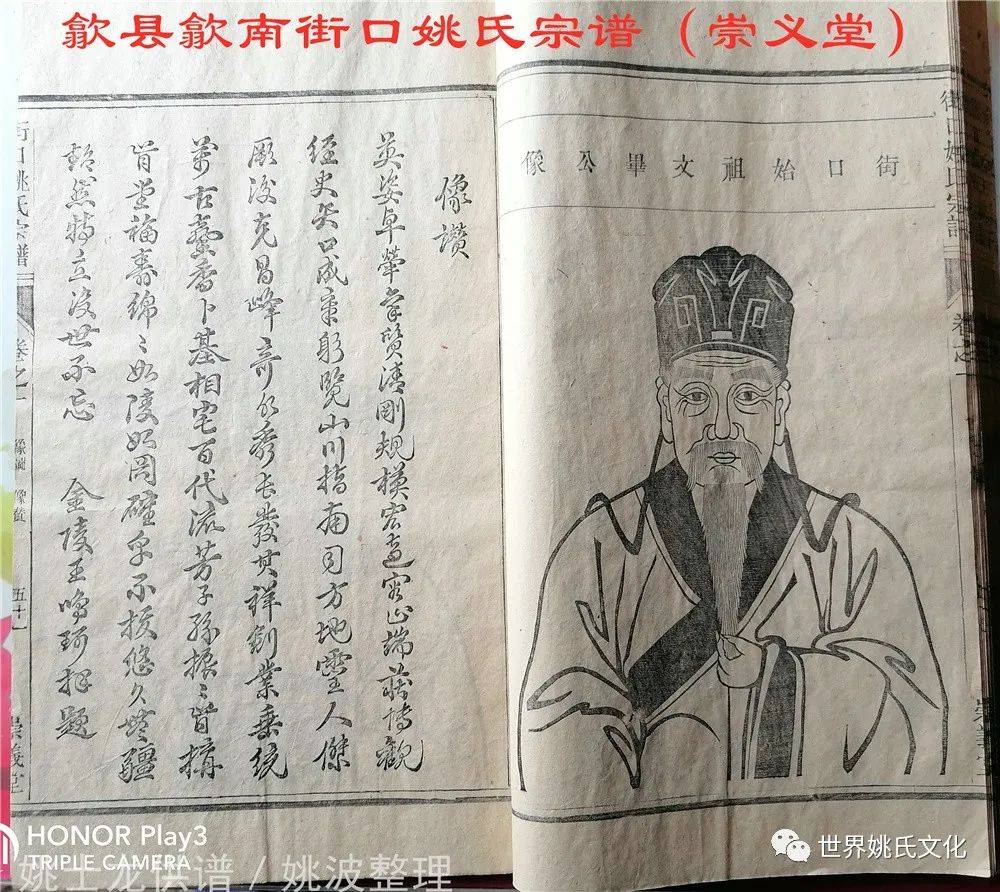 歙县歙南街口姚氏宗谱（崇义堂）
街口始祖文畢公像
像讚
英姿卓犖賦質清剛規模宏遠容止端莊博觀
經史矢口成章躬覽山川指南司方地靈人傑
厥後克昌峰奇水秀長發其祥創業垂統
萬古馨香卜基相宅百代流芳子孫振〻肯構
肯堂福壽綿〻如陵如岡確乎不拔悠久無疆
超然特立沒世不忘 金陵王鳴珂拜題
街口姚氏宗譜
卷之一
像圖 像贊
五十一
崇義堂
街口姚氏宗譜
卷之一
崇義堂
HONOR Play3
TRIPLE CAMERA
姚土龙供谱 / 姚波整理
世界姚氏文化